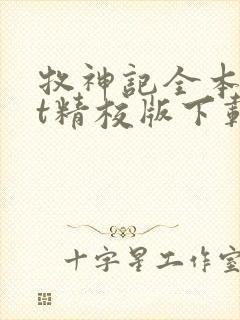 牧神記全本
t精校版下載
十字星工作室